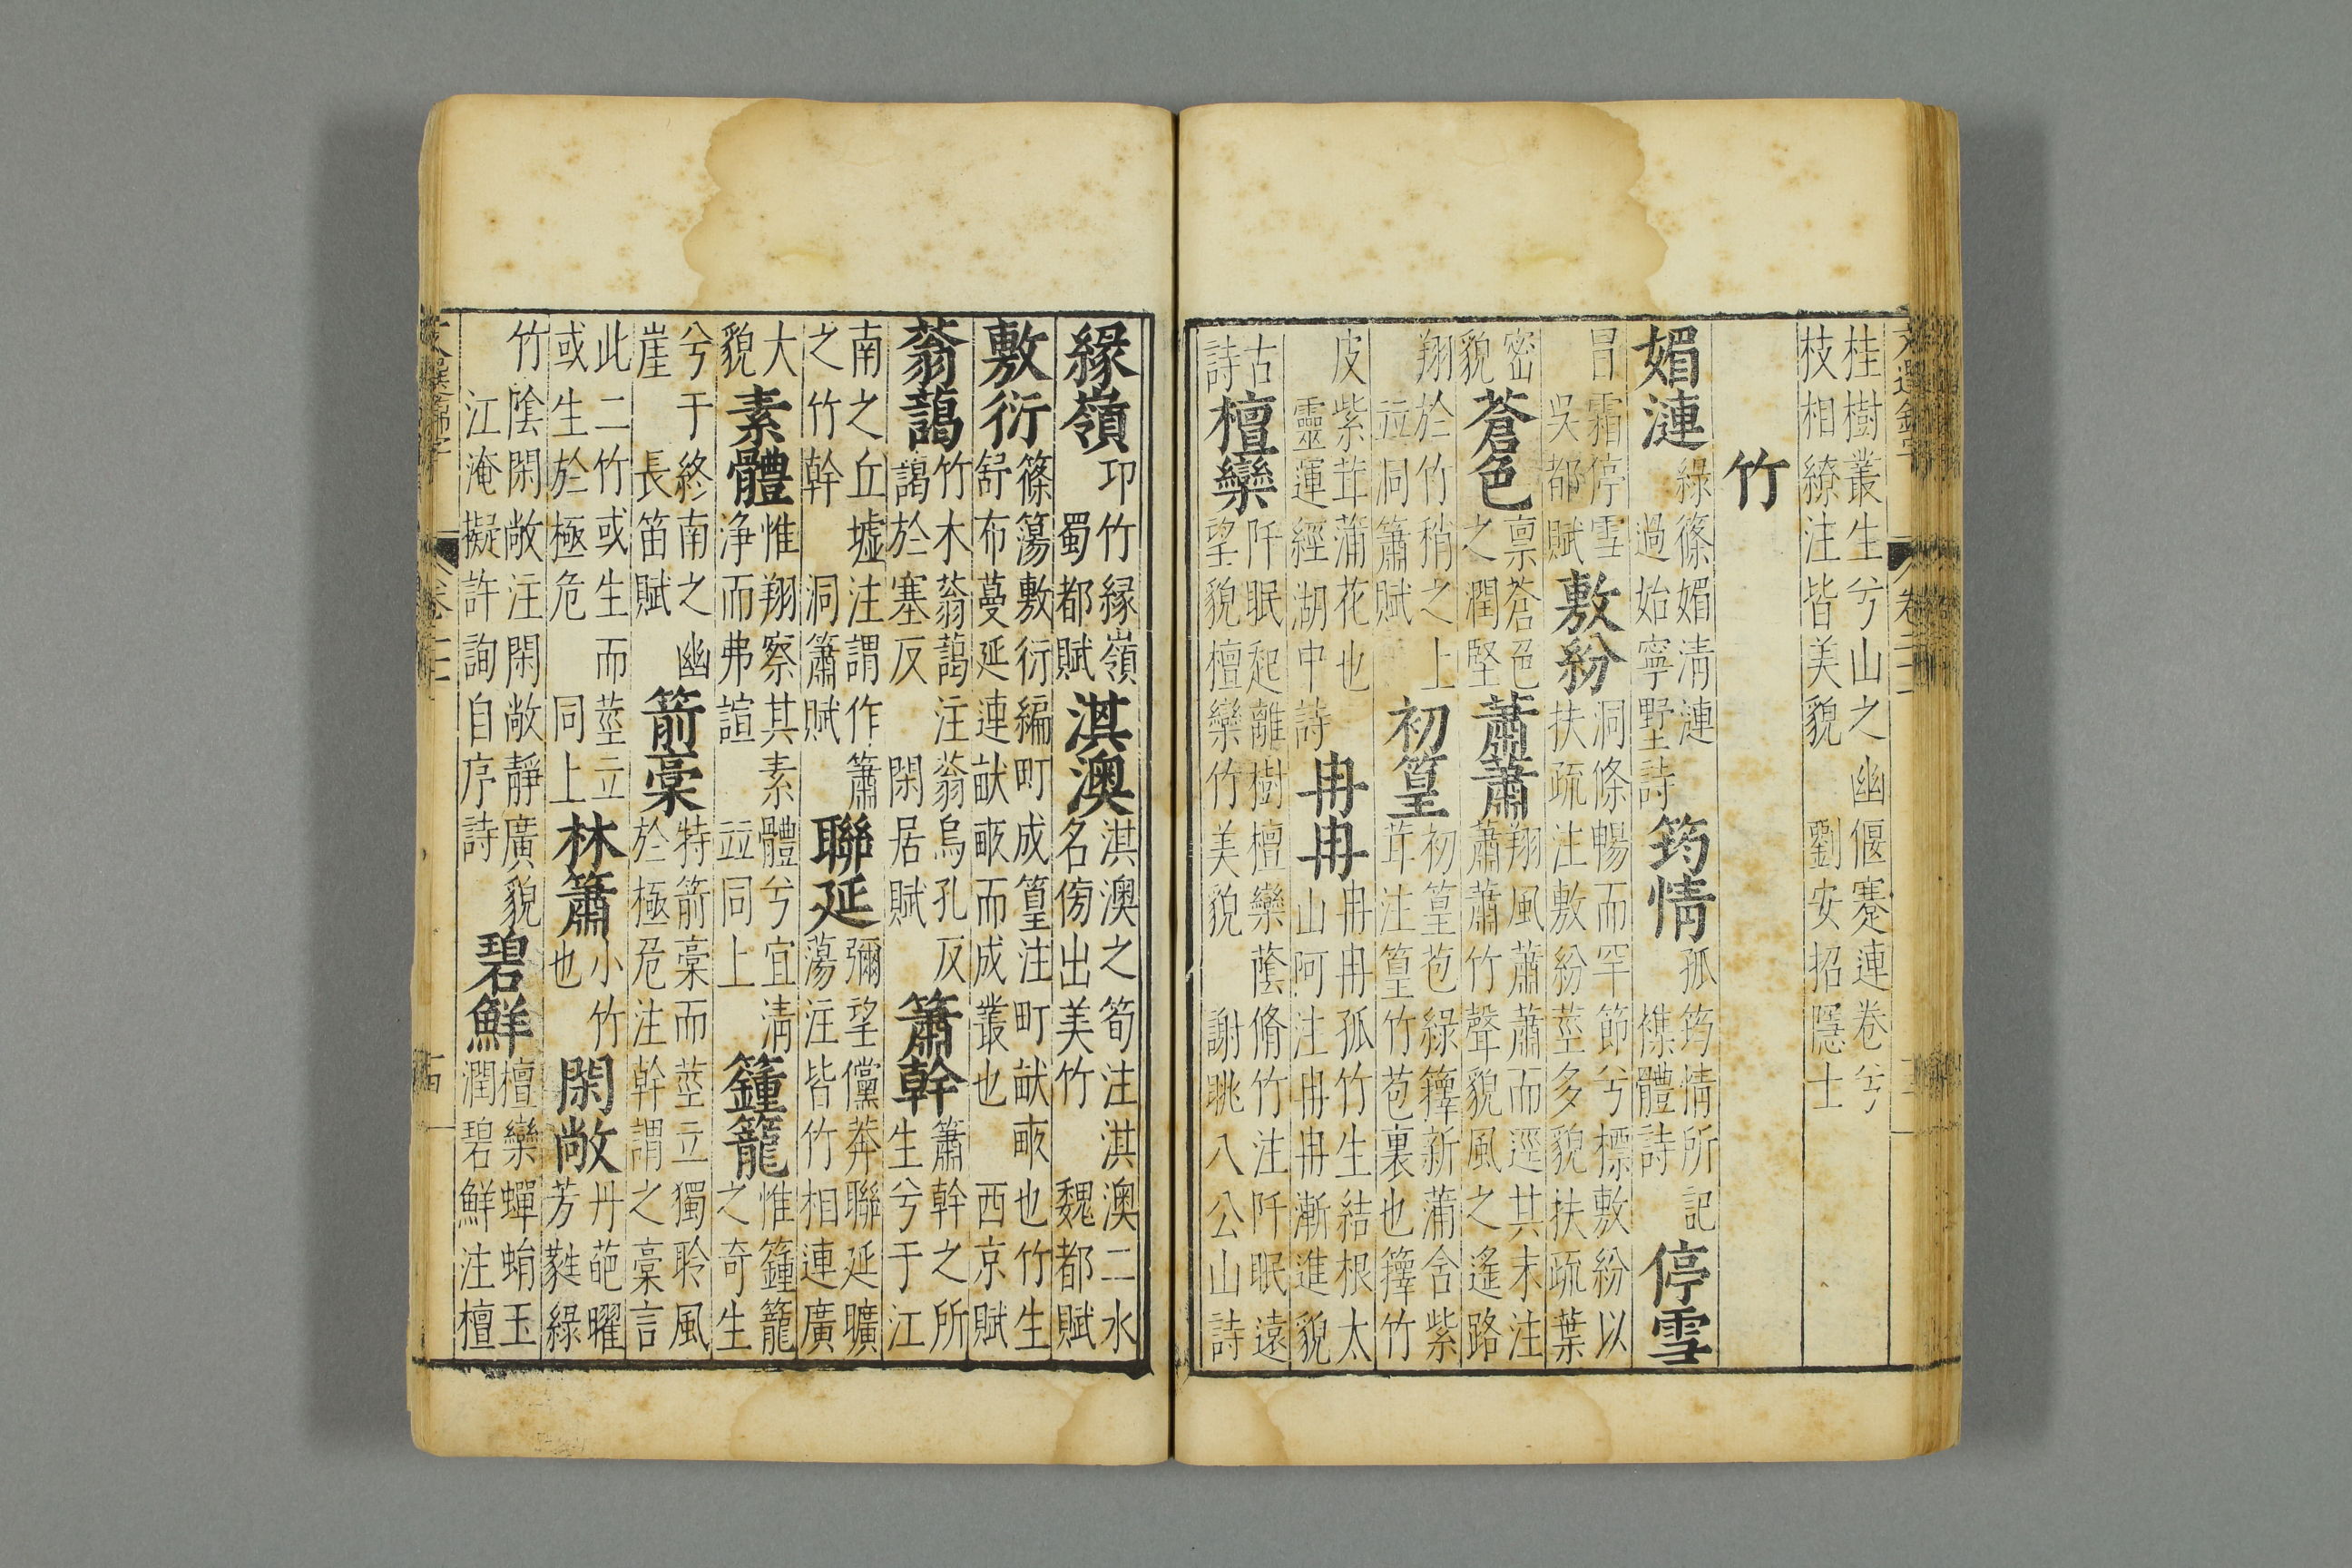 桂樹叢生兮山之幽偃蹇連卷兮
枝相繚注皆美貌 劉安招隱士
竹
媚漣 綠篠媚清漣 過始寧墅詩 筠情 孤筠情所記 襍體詩 停雪
冒霜停雪 吳都賦 敷紛 洞條暢而罕節兮標敷紛以扶疏注敷紛莖多貌扶疏葉
密貌 蒼色 禀蒼色之潤堅 蕭蕭 翔風蕭蕭而逕其末注蕭蕭竹聲貌風之遙路
翔於竹稍之上 竝洞簫賦 初篁 初篁苞綠籜新蒲含紫茸注篁竹苞裏也籜竹
皮紫茸蒲花也 靈運經湖中詩 冉冉 冉冉孤竹生結根太山阿注冉冉漸進貌
古詩 檀欒 阡眠起離樹檀欒蔭脩竹注阡眠遠望貌檀欒竹美貌 謝眺八公山詩
緣嶺 邛竹緣嶺 蜀都賦 淇澳 淇澳之筍注淇澳二水名傍出美竹 魏都賦
敷衍 篠簜敷衍編町成篁注町畎畝也竹生舒布蔓延連畎畝而成叢也 西京賦
蓊藹 竹木蓊藹注蓊烏孔反藹於塞反 閑居賦 簫幹 簫幹之所生兮于江
南之丘墟注謂作簫之竹幹 洞簫賦 聯延 彌望儻莽聯延曠蕩注皆竹相連廣
大貌 素體 惟翔察其素體兮宜清浄而弗諠 竝同上 籦籠 惟籦籠之奇生
兮于終南之幽崖 長笛賦 箭槀 特箭槀而莖立獨聆風於極危注幹謂之槀言
此二竹或生而莖立或生於極危 同上 林簫 小竹也 閑敞 丹葩曜芳蕤綠
竹陰閑敞注閑敞靜廣貌 江淹擬許詢自序詩 碧鮮 檀欒蟬蜎玉潤碧鮮注檀